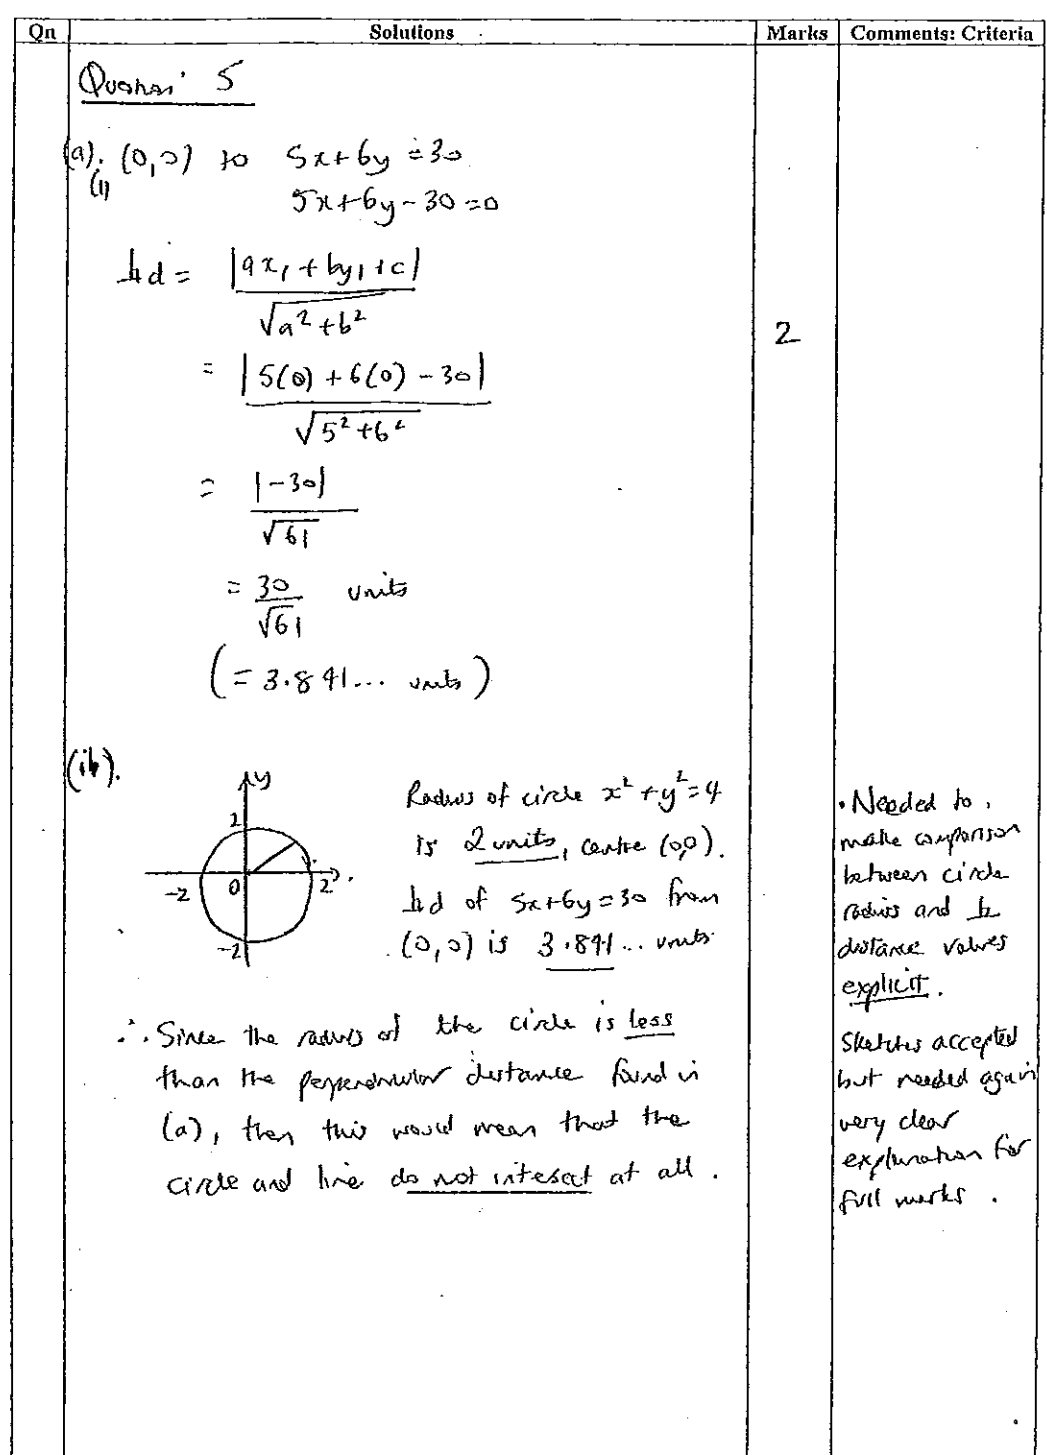 Qn Solutions Marks Comments: Criteria
Question 5
(a). (0,0) to 5x+6y=30
(i)
5x+6y-30=0
⊥d = |ax₁+by₁+c|
√a²+b²
= |5(0)+6(0)-30|
√5²+6²
2
= |-30|
√61
= 30 units
√61
(= 3.841... units)
(ii).
y
2
-2 0 2
-2
Radius of circle x²+y²=4
is 2 units, centre (0,0).
⊥d of 5x+6y=30 from
(0,0) is 3.841... units
∴ Since the radius of the circle is less
than the perpendicular distance found in
(a), then this would mean that the
circle and line do not intesect at all.
• Needed to
make comparison
between circle
radius and ⊥
distance values
explicit.
Sketches accepted
but needed again
very clear
explanation for
full marks.